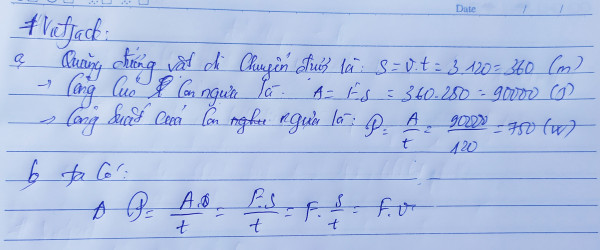 Date / /
# VietJack:
a, Quãng đường vật di chuyển được là: S = v.t = 3.120 = 360 (m)
→ Công của con ngựa là. A = F.S = 360.250 = 90000 (J)
→ Công suất của con ngựa là: P = A/t = 90000/120 = 750 (W)
b, Ta có:
P = A/t = F.S/t = F. S/t = F.v